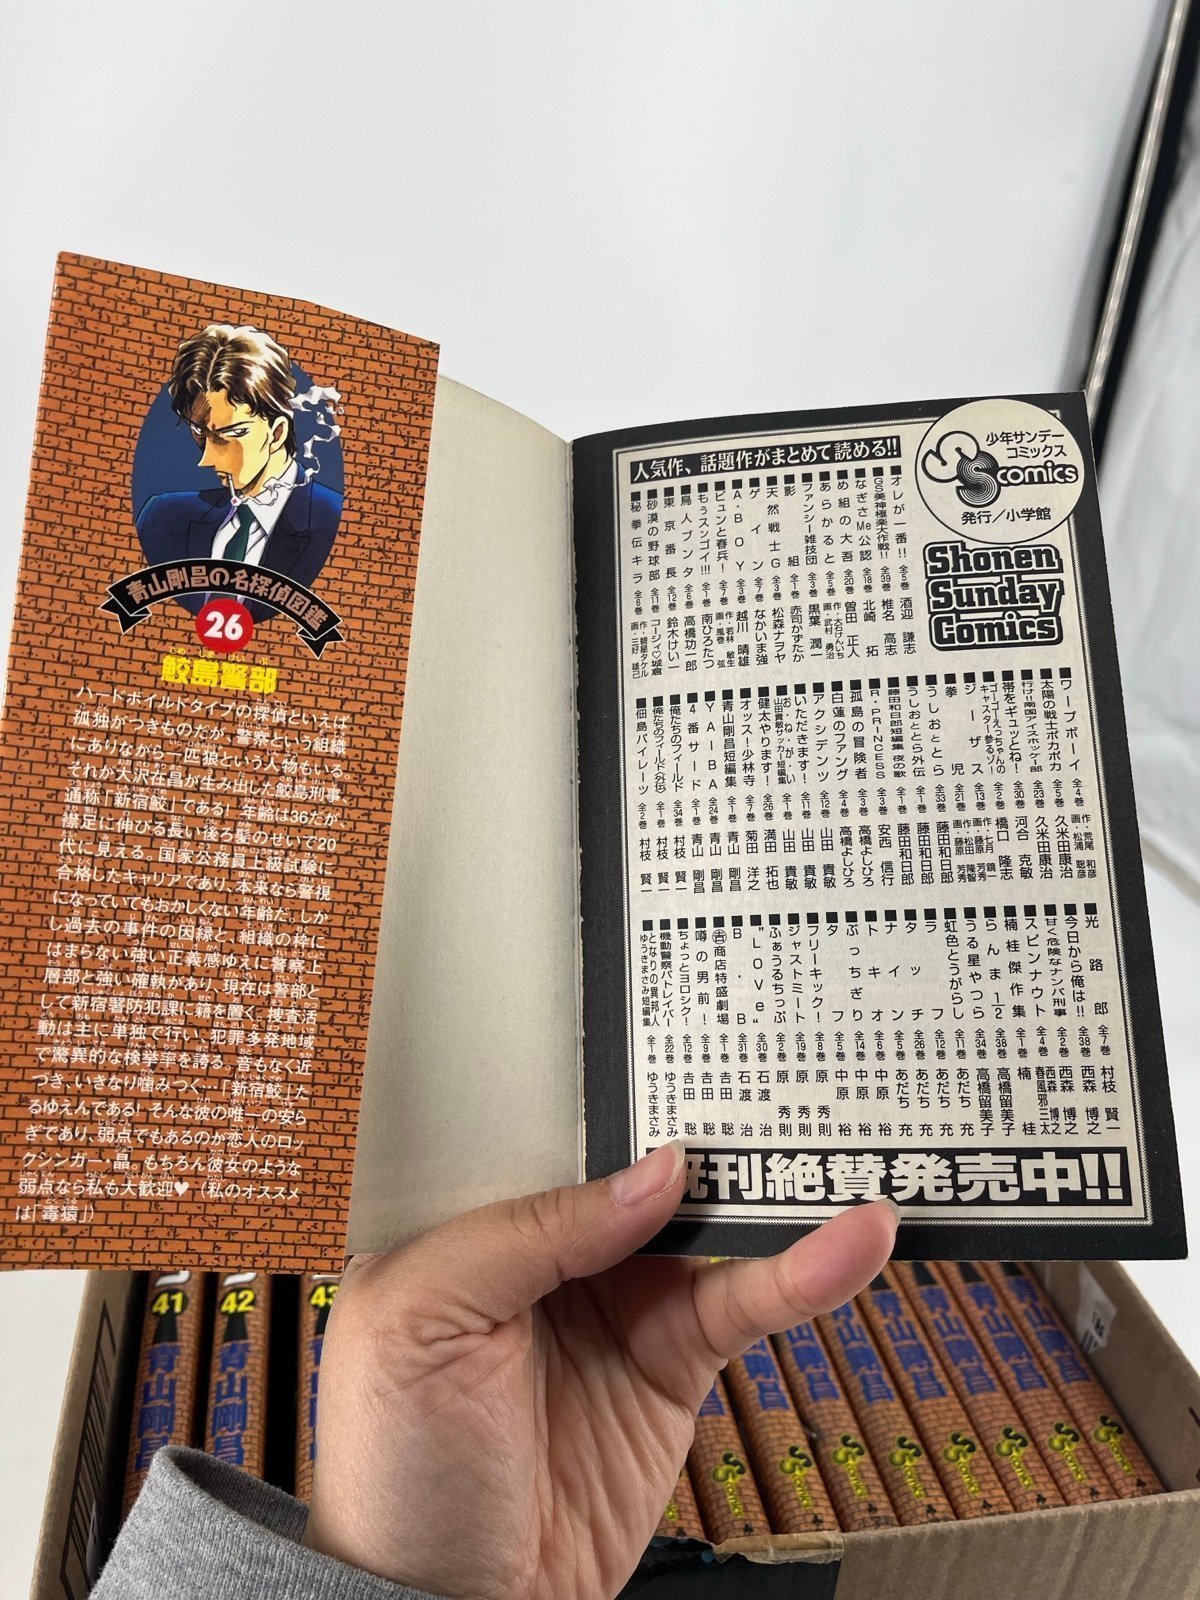 青山剛昌の名探偵図鑑
26
鮫島警部
ハードボイルドタイプの探偵といえば
孤独がつきものだが、警察という組織
にありながら一匹狼という人物もいる。
それが大沢在昌が生み出した鮫島刑事、
通称「新宿鮫」である！年齢は36だが、
襟足に伸びる長い後ろ髪のせいで20
代に見える。国家公務員上級試験に
合格したキャリアであり、本来なら警視
になっていてもおかしくない年齢だ。しか
し過去の事件の因縁と、組織の枠に
はまらない強い正義感ゆえに警察上
層部と強い確執があり、現在は警部と
して新宿署防犯課に籍を置く。捜査活
動は主に単独で行い、犯罪多発地域
で驚異的な検挙率を誇る。音もなく近
づき、いきなり噛みつく…「新宿鮫」た
るゆえんである！そんな彼の唯一の安ら
ぎであり、弱点でもあるのが恋人のロッ
クシンガー・晶。もちろん彼女のような
弱点なら私も大歓迎♥（私のオススメ
は「毒猿」）
少年サンデー
コミックス
SS comics
発行／小学館
Shonen
Sunday
Comics
人気作、話題作がまとめて読める!!
■オレが一番!! 全5巻 酒迎 謙志
■GS美神極楽大作戦!! 全39巻 椎名 高志
■なぎさMe公認 全18巻 北崎 拓
■め組の大吾 全20巻 曽田 正人
■あらかると 全5巻 作・大石けんいち 画・武村 勇治
■ファンシー雑技団 全3巻 黒葉 潤一
■影組 全1巻 赤司かずたか
■天然戦士G 全3巻 松森ナヲヤ
■ゲイン 全7巻 なかいま強
■A・BOY 全7巻 越川 晴雄
■ビュンと春兵! 全7巻 作・若林 敏生 画・風巻 弦
■もぅスンゴイ!!! 全1巻 南ひろたつ
■鳥人ブンタ 全6巻 高橋功一郎
■東京番長 全12巻 鈴木けい一
■砂漠の野球部 全11巻 コージィ♡城倉
■秘拳伝キラ 全6巻 作・碧星タケル 画・三好 雄己
■ワープボーイ 全4巻 作・荒尾 和彦 画・松浦 聡彦
■太陽の戦士ポカポカ 全5巻 久米田康治
■行け!!南国アイスホッケー部 全23巻 久米田康治
■帯をギュッとね! 全30巻 河合 克敏
■ゴーゴー♥えっちゃんのキャスター参るゾ! 全2巻 橋口 隆志
■ジーザス 全13巻 作・七月 鏡一 画・藤原 芳秀
■拳児 全21巻 作・松田 隆智 画・藤原 芳秀
■うしおととら 全33巻 藤田和日郎
■うしおととら外伝 全1巻 藤田和日郎
■藤田和日郎短編集 夜の歌 全1巻 藤田和日郎
■R・PRINCESS 全3巻 安西 信行
■孤島の冒険者 全3巻 高橋よしひろ
■白蓮のファング 全4巻 高橋よしひろ
■アクシデンツ 全12巻 山田 貴敏
■いただきます! 全11巻 山田 貴敏
■山田貴敏サッカー短編集 お・ね・が・い 全1巻 山田 貴敏
■健太やります! 全26巻 満田 拓也
■オッス!少林寺 全7巻 菊田 洋之
■青山剛昌短編集 全1巻 青山 剛昌
■YAIBA 全24巻 青山 剛昌
■4番サード 全1巻 青山 剛昌
■俺たちのフィールド 全34巻 村枝 賢一
■俺たちのフィールド外伝 全1巻 村枝 賢一
■佃島パイレーツ 全2巻 村枝 賢一
■光路郎 全7巻 村枝 賢一
■今日から俺は!! 全38巻 西森 博之
■甘く危険なナンパ刑事 全2巻 西森 博之
■スピンナウト 全4巻 春風邪三太
■楠桂傑作集 全1巻 楠 桂
■らんま½ 全38巻 高橋留美子
■うる星やつら 全34巻 高橋留美子
■虹色とうがらし 全11巻 あだち 充
■ラフ 全12巻 あだち 充
■タッチ 全26巻 あだち 充
■ナイン 全5巻 あだち 充
■トキオ 全6巻 中原 裕
■ぶっちぎり 全14巻 中原 裕
■フリーキック! 全8巻 原 秀則
■ジャストミート 全19巻 原 秀則
■ふぁうるちっぷ 全2巻 原 秀則
■"LOVe" 全30巻 石渡 治
■B・B 全31巻 石渡 治
■㊎商店特盛劇場 全1巻 吉田 聡
■噂の男前! 全9巻 吉田 聡
■ちょっとヨロシク! 全12巻 吉田 聡
■機動警察パトレイバー 全22巻 ゆうきまさみ
■となりの異邦人 ゆうきまさみ短編集 全1巻 ゆうきまさみ
既刊絶賛発売中!!
41
42
43
青山剛昌
青山剛昌